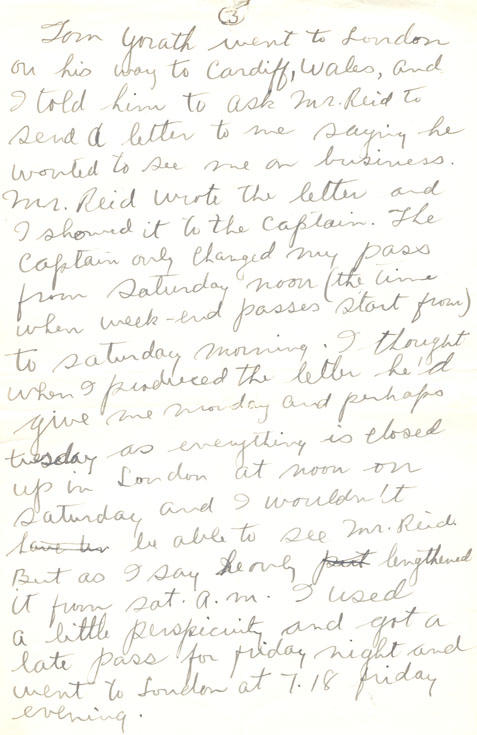 5
Tom Yorath went to London
on his way to Cardiff, Wales, and
I told him to ask Mr. Reid to
send a letter to me saying he
wonted to see me on business.
Mr. Reid wrote the letter and
I showed it to the Captain. The
Captain only changed my pass
from Saturday noon (the time
when week-end passes start from)
to saturday morning. I thought
when I produced the letter he'd
give me monday and perhaps
tuesday as everything is closed
up in London at noon on
saturday and I wouldn't
be able to see Mr. Reid.
But as I say he only lengthened
it from sat. a.m. I used
a little perspicuity and got a
late pass for friday night and
went to London at 7.18 friday
evening.